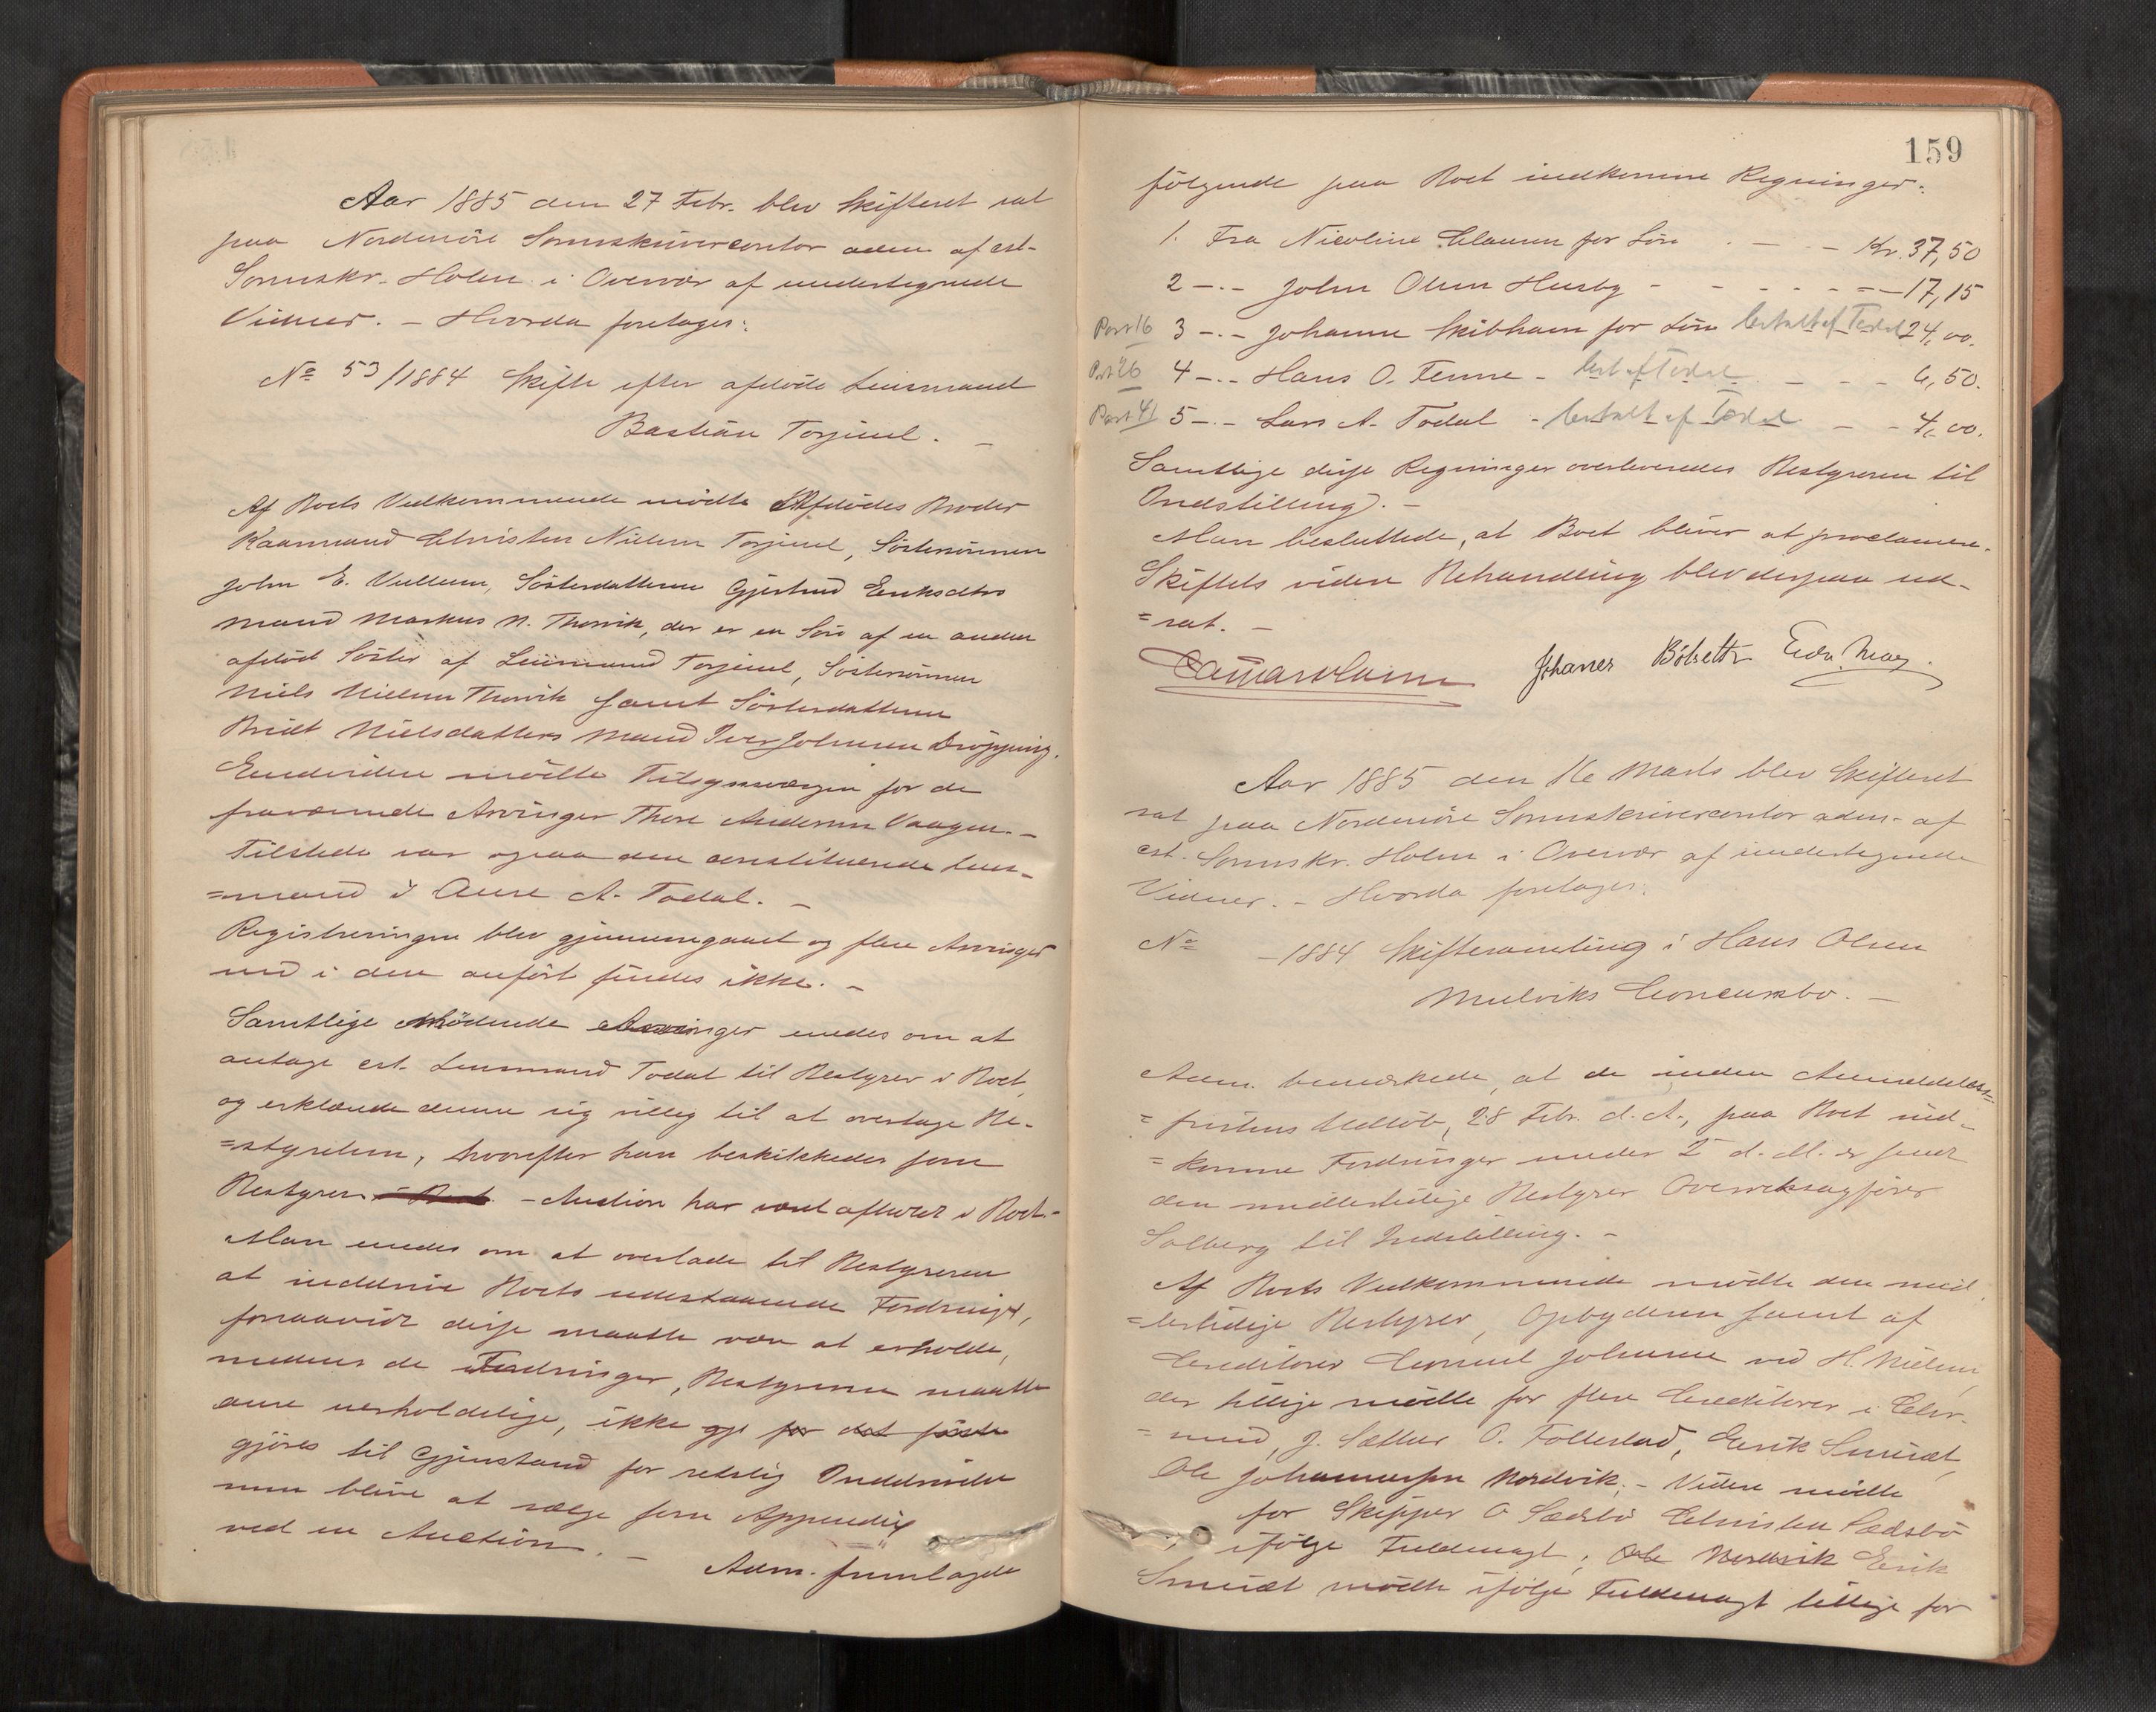 Aar 1885 den 27 Febr. blev Skifteret sat
paa Nordmöre Sorenskrivercontor adm. af cst.
Sorenskr. Holm i Overvær af undertegnede
Vidner. - Hvorda foretages:
No 53/1884 Skifte efter afdöde Lensmand
Bastian Torjuul. -
Af Boets Vedkommende mödte Afdödes Broder
Kaarmand Christen Nielsen Torjuul, Söstersönnen
John E. Vullum, Sösterdatteren Gjertrud Eriksdtrs
Mand Markus N. Thorvik, der er en Sön af en anden
afdöd Söster af Lensmand Torjuul, Söstersönnen
Niels Nielsen Thorvik samt Sösterdatteren
Beret Nielsdatters Mand Iver Johnsen Dröpping.
Endvidere mödte Tilsynsværgen for de
fraværende Arvinger Thore Andersen Vaagen. -
Tilstede var ogsaa den constituerede Lens-
=mand i Aure A. Todal. -
Registreringen blev gjennemgaaet og flere Arvinger
end i den anfört findes ikke. -
Samtlige Mödende Arvinger enedes om at
antage cst. Lensmand Todal til Bestyrer i Boet
og erklærede denne sig villig til at overtage Be-
=styrelsen, hvorefter han beskikkedes som
Bestyrer i Boet. - Auction har været afholdt i Boet. -
Man enedes om at overlade til Bestyreren
at inddrive Boets udestaaende Fordringer,
forsaavidt disse maatte være at erholde,
medens de Fordringer, Bestyreren maatte
anse uerholdelige, ikke for det förste
gjöres til Gjenstand for retslig Inddrivelse
men blive at sælge som Appendix
ved en Auction. -
Adm. fremlagde
159
fölgende paa Boet indkomne Regninger:
1. Fra Nicoline Clausen for Lön - - Kr. 37,50
2 -.- John Olsen Husby - - - - - - 17,15
Post 16 3 -.- Johanne Skibhavn for Lön betalt af Todal 24,00.
Post 26 4 -.- Hans O. Fenne - bet af Todal - - - 6,50.
Post 41 5 -.- Lars A. Todal - betalt af Todal - - 4,00.
Samtlige disse Regninger overleveredes Bestyreren til
Indstilling. -
Man besluttede, at Boet bliver at proclamere.
Skiftets videre Behandling blev derpaa ud-
=sat. -
Holm Johannes Bölseth
Aar 1885 den 16 Marts blev Skifteret
sat paa Nordmöre Sorenskrivercontor adm. af
cst. Sorenskr. Holm i Overvær af undertegnede
Vidner. - Hvorda foretages:
No - 1884 Skiftesamling i Hans Olsen
Mulviks Concursbo. -
Adm. bemærkede, at de inden Anmeldelses-
=fristens Udlöb, 28 Febr. d. A., paa Boet ind-
=komne Fordringer under 2 d. M. er sendt
den midlertidige Bestyrer Overretssagförer
Solberg til Indstilling. -
Af Boets Vedkommende mödte den mid-
=lertidige Bestyrer, Opbyderen samt af
Creditorer Consul Johnsen ved H. Nielsen,
der tillige mödte for flere Creditorer i Chr.-
=sund, J. Sætter O. Follestad, Erik Smeuet,
Ole Johannessen Nordvik. - Videre mödte
for Skipper O Sædsbö Christen Sædsbö
ifölge Fuldmagt; Ole Nordvik Erik
Smeuet mödte ifölge Fuldmagt tillige for